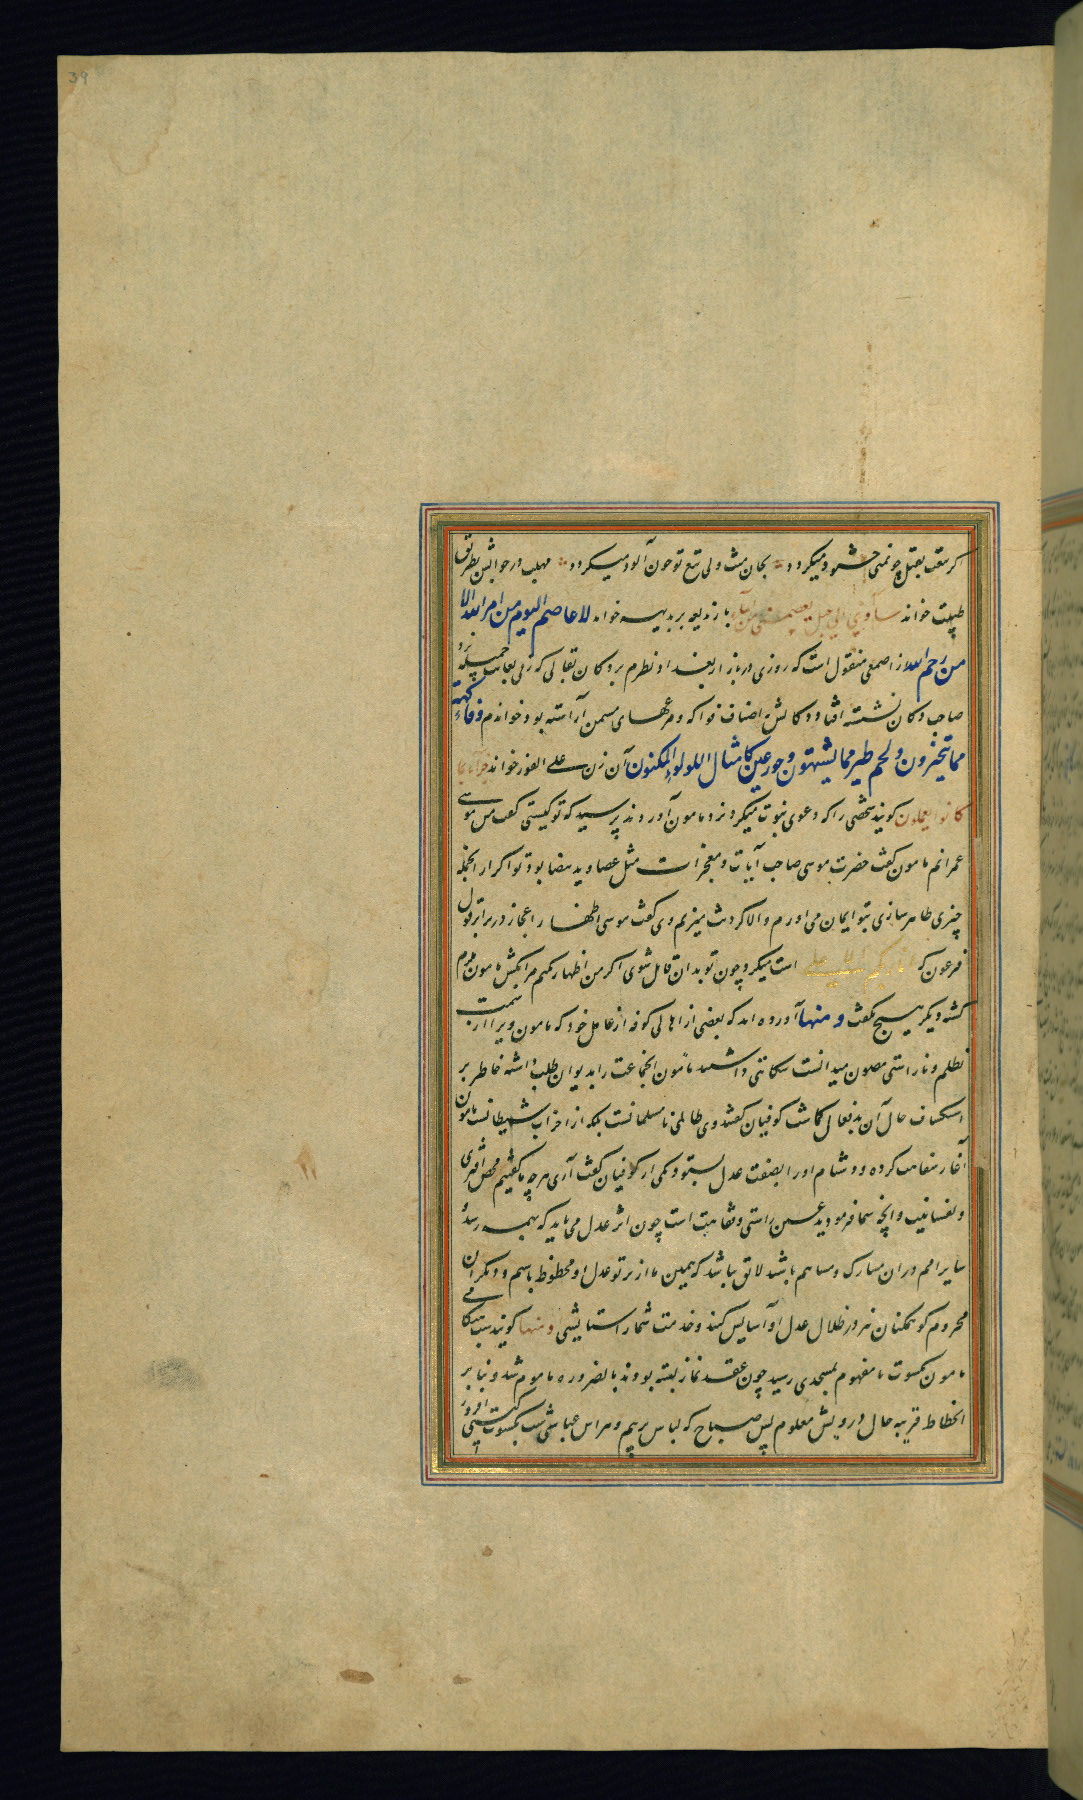 39
کر سقت بقتل چو نمی خشنود میکردد بجان منت ولی تیغ تو خون آلود میکردد مهلب در جوابش بطریق
طیبت خواند سآوی الی جبل یعصمنی من الماء باز بدیهه خواند لا عاصم الیوم من امر الله الا
من رحم الله از اصمعی منقول است که روزی در بازار بغداد نظرم بر دکان بقالی که زنی بغایت جمیله نزد
صاحب دکان نشسته افتاد و دکانش باصناف فواکه و مرغهای مسمن آراسته بود خواندم و فاکهة
مما یتخیرون ولحم طیر مما یشتهون وحور عین کامثال اللولو المکنون آن زن علی الفور خواند جزاء بما
کانوا یعملون کویند شخصی را که دعوی نبوت میکرد نزد مامون آوردند پرسید که تو کیستی کفت من موسی
عمرانم مامون کفت حضرت موسی صاحب آیات و معجزات مثل عصا و ید بیضا بود تو اکر از انجمله
چیزی ظاهر سازی بتو ایمان می اورم و الا کردنت میزنم وی کفت موسی اظهار اعجاز در برابر قول
فرعون که انا ربکم الاعلی است میکرد چون تو بدان قایل شوی اکر من اظهار نکنم مرا بکش مامون ملزم
کشته دیکر هیچ نکفت و منها آورده اند که بعضی از اهالی کوفه از عامل خود که مامون ویرا از سمت
تظلم و ناراستی مصون میدانست شکایتی داشتند مامون انجماعت را بدیوان طلب داشته خاطر بر
استکشاف حال آن بدفعال کماشت کوفیان کفتند وی ظالمی نامسلمانست بلکه از احزاب شیطانست مامون
آغاز سفاهت کرده و دشنام او را بصفت عدل بستود یکی از کوفیان کفت آری هر چه ما کفتیم محض افتری
و نفسانیت و انچه شما فرمودید عین راستی و متانت است چون اثر عدل می باید که بهمه رسد و
سایر امم در ان مشارک و مساهم باشند لایق نباشد که همین ما از پرتو عدل او محظوظ باشیم و دیکران
محروم کو ممکنان نیز در ظلال عدل او آسایش کنند و خدمت شما را ستایشی و منها کویند شب هنکامی
مامون بکسوت نامفهوم بمسجدی رسید چون عقد نماز بسته بودند بالضروره ماموم شد و بنا بر
انحطاط قرینه حال درویش معلوم پس صباح که لباس بیم و هراس عباسی شب بکسوت امروز